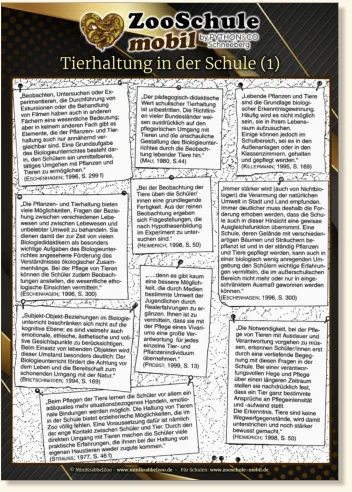 ZooSchule
mobil by PYTHON&CO
Schneeberg
Tierhaltung in der Schule (1)
„Beobachten, Untersuchen oder Ex-
perimentieren, die Durchführung von
Exkursionen oder die Behandlung
von Filmen haben auch in anderen
Fächern eine wesentliche Bedeutung;
aber in keinem anderen Fach gibt es
Elemente, die der Pflanzen- und Tier-
haltung auch nur annähernd ver-
gleichbar sind. Eine Grundaufgabe
des Biologieunterrichts besteht dar-
in, den Schülern ein unmittelbares,
tätiges Umgehen mit Pflanzen und
Tieren zu ermöglichen."
(ESCHENHAGEN; 1996, S. 299 f)
„Der pädagogisch-didaktische
Wert schulischer Tierhaltung
ist unbestritten. Die Richtlini-
en vieler Bundesländer wei-
sen ausdrücklich auf den
pflegerischen Umgang mit
Tieren und die anschauliche
Gestaltung des Biologieunter-
richtes durch die Beobach-
tung lebender Tiere hin."
(MAU; 1980, S.44)
„Lebende Pflanzen und Tiere
sind die Grundlage biologi-
scher Erkenntnisgewinnung.
Häufig wird es nicht möglich
sein, sie in ihrem Lebens-
raum aufzusuchen.
Einige können jedoch im
Schulbereich, sei es in den
Außenanlagen oder in den
Klassenzimmern, gehalten
und gepflegt werden."
(KILLERMANN; 1995, S. 169)
„Die Pflanzen- und Tierhaltung bieten
viele Möglichkeiten, Fragen der Bezie-
hung zwischen verschiedenen Lebe-
wesen und zwischen Lebewesen und
unbelebter Umwelt zu behandeln. Sie
dienen damit der zur Zeit von vielen
Biologiedidaktikern als besonders
wichtige Aufgaben des Biologieunter-
richtes angesehene Förderung des
Verständnisses ökologischer Zusam-
menhänge. Bei der Pflege von Tieren
können die Schüler zudem Beobach-
tungen anstellen, die wesentliche etho-
logische Einsichten vermitteln."
(ESCHENHAGEN; 1996, S. 300)
„Bei der Beobachtung der
Tiere üben die Schüler/
innen eine grundlegende
Fertigkeit. Aus der reinen
Beobachtung ergeben
sich Fragestellungen, die
nach Hypothesenbildung
im Experiment zu unter-
suchen sind."
(HEIMERICH; 1998, S. 50)
„Immer stärker wird (auch von Nichtbio-
logen) die Verarmung der natürlichen
Umwelt in Stadt und Land empfunden.
Immer deutlicher muss deshalb die For-
derung erhoben werden, dass die Schu-
le auch in dieser Hinsicht eine gewisse
Ausgleichsfunktion übernimmt. Eine
Schule, deren Gelände mit verschieden-
artigen Bäumen und Sträuchern be-
pflanzt ist und in der ständig Pflanzen
und Tiere gepflegt werden, kann auch in
einer biologisch wenig anregenden Um-
gebung den Schülern wichtige Erfahrun-
gen vermitteln, die im außerschulischen
Bereich nicht mehr oder nur in einge-
schränktem Ausmaß gewonnen werden
können."
(ESCHENHAGEN; 1996, S. 300)
„...denn es gibt kaum
eine bessere Möglich-
keit, die durch Medien
bestimmte Umwelt der
Jugendlichen durch
Realerfahrungen zu er-
gänzen. Ihnen ist zu
vermitteln, dass sie mit
der Pflege eines Vivari-
ums eine große Ver-
antwortung für jedes
einzelne Tier- und
Pflanzenindividuum
übernehmen."
(PROBST; 1999, S. 13)
„Subjekt-Objekt-Beziehungen im Biologie-
unterricht beschränken sich nicht auf die
kognitive Ebene; es sind vielmehr auch
emotionale, ethische, ästhetische und voli-
tive Gesichtspunkte zu berücksichtigen.
Beim Einsatz von lebenden Objekten wird
dieser Umstand besonders deutlich: Der
Biologieunterricht fördert die Achtung vor
dem Leben und die Bereitschaft zum
schonenden Umgang mit der Natur."
(BRETSCHNEIDER; 1994, S. 169)
„Die Notwendigkeit, bei der Pfle-
ge von Tieren mit Ausdauer und
Verantwortung vorgehen zu müs-
sen, erkennen Schüler/innen erst
durch eine vertiefende Begeg-
nung mit diesen Fragen in der
Schule. Bei einer verantwor-
tungsvollen Hege und Pflege
über einen längeren Zeitraum
stellen sie nachdrücklich fest,
dass ein Tier ganz bestimmte
Ansprüche an Pflegeintensität
und -aufwand stellt.
Die Erkenntnis, Tiere sind keine
Wegwerfgegenstände, wird damit
unterstrichen und noch stärker
bewusst gemacht."
(HEIMERICH; 1998, S. 50)
„Beim Pflegen der Tiere lernen die Schüler vor allem ein
adäquates, mehr situationsbezogenes Handeln, emotio-
nale Bindungen werden möglich. Die Haltung von Tieren
in der Schule bietet erzieherische Möglichkeiten, die im
Zoo völlig fehlen. Eine Voraussetzung dafür ist nämlich
der enge Kontakt zwischen Schüler und Tier. Durch den
direkten Umgang mit Tieren machen die Schüler viele
praktische Erfahrungen, die ihnen bei der Haltung von
eigenen Haustieren wieder zugute kommen."
(STRAUSS; 1977, S. 46 f)
© MiniKrabbelZoo - www.minikrabbelzoo.de - Für Schulen: www.zooschule-mobil.de